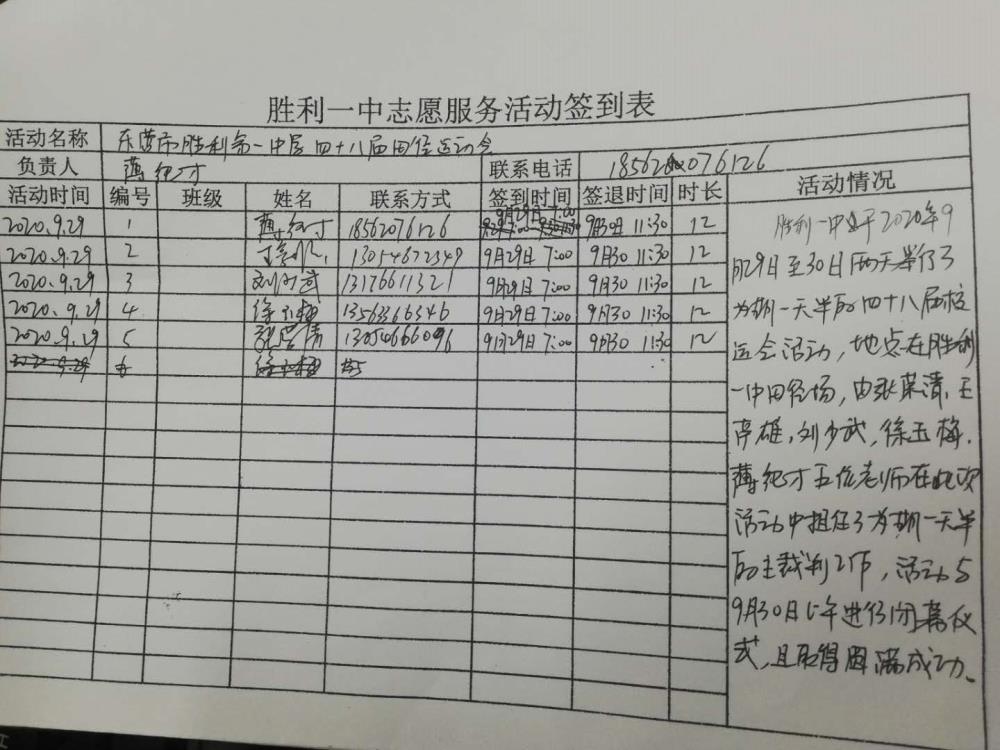 胜利一中志愿服务活动签到表
活动名称 东营市胜利第一中学四十八届田径运动会
负责人 薄纪才 联系电话 18562076126
活动时间 编号 班级 姓名 联系方式 签到时间 签退时间 时长 活动情况
2020.9.29 1 薄纪才 18562076126 9月29日 7:00 9月30日 11:30 12
2020.9.29 2 13054672349 9月29日 7:00 9月30 11:30 12
2020.9.29 3 刘少武 13176611321 9月29日 7:00 9月30 11:30 12
2020.9.29 4 徐玉梅 13563366346 9月29日 7:00 9月30 11:30 12
2020.9.29 5 张荣清 13054666096 9月29日 7:00 9月30 11:30 12
胜利一中于2020年9
月29日至30日两天举行了
为期一天半的四十八届校
运会活动，地点在胜利
一中田径场，由张荣清，王
雄，刘少武，徐玉梅，
薄纪才五位老师在此次
活动中担任了为期一天半
的主裁判工作，活动与
9月30日上午进行闭幕仪
式，且取得圆满成功。